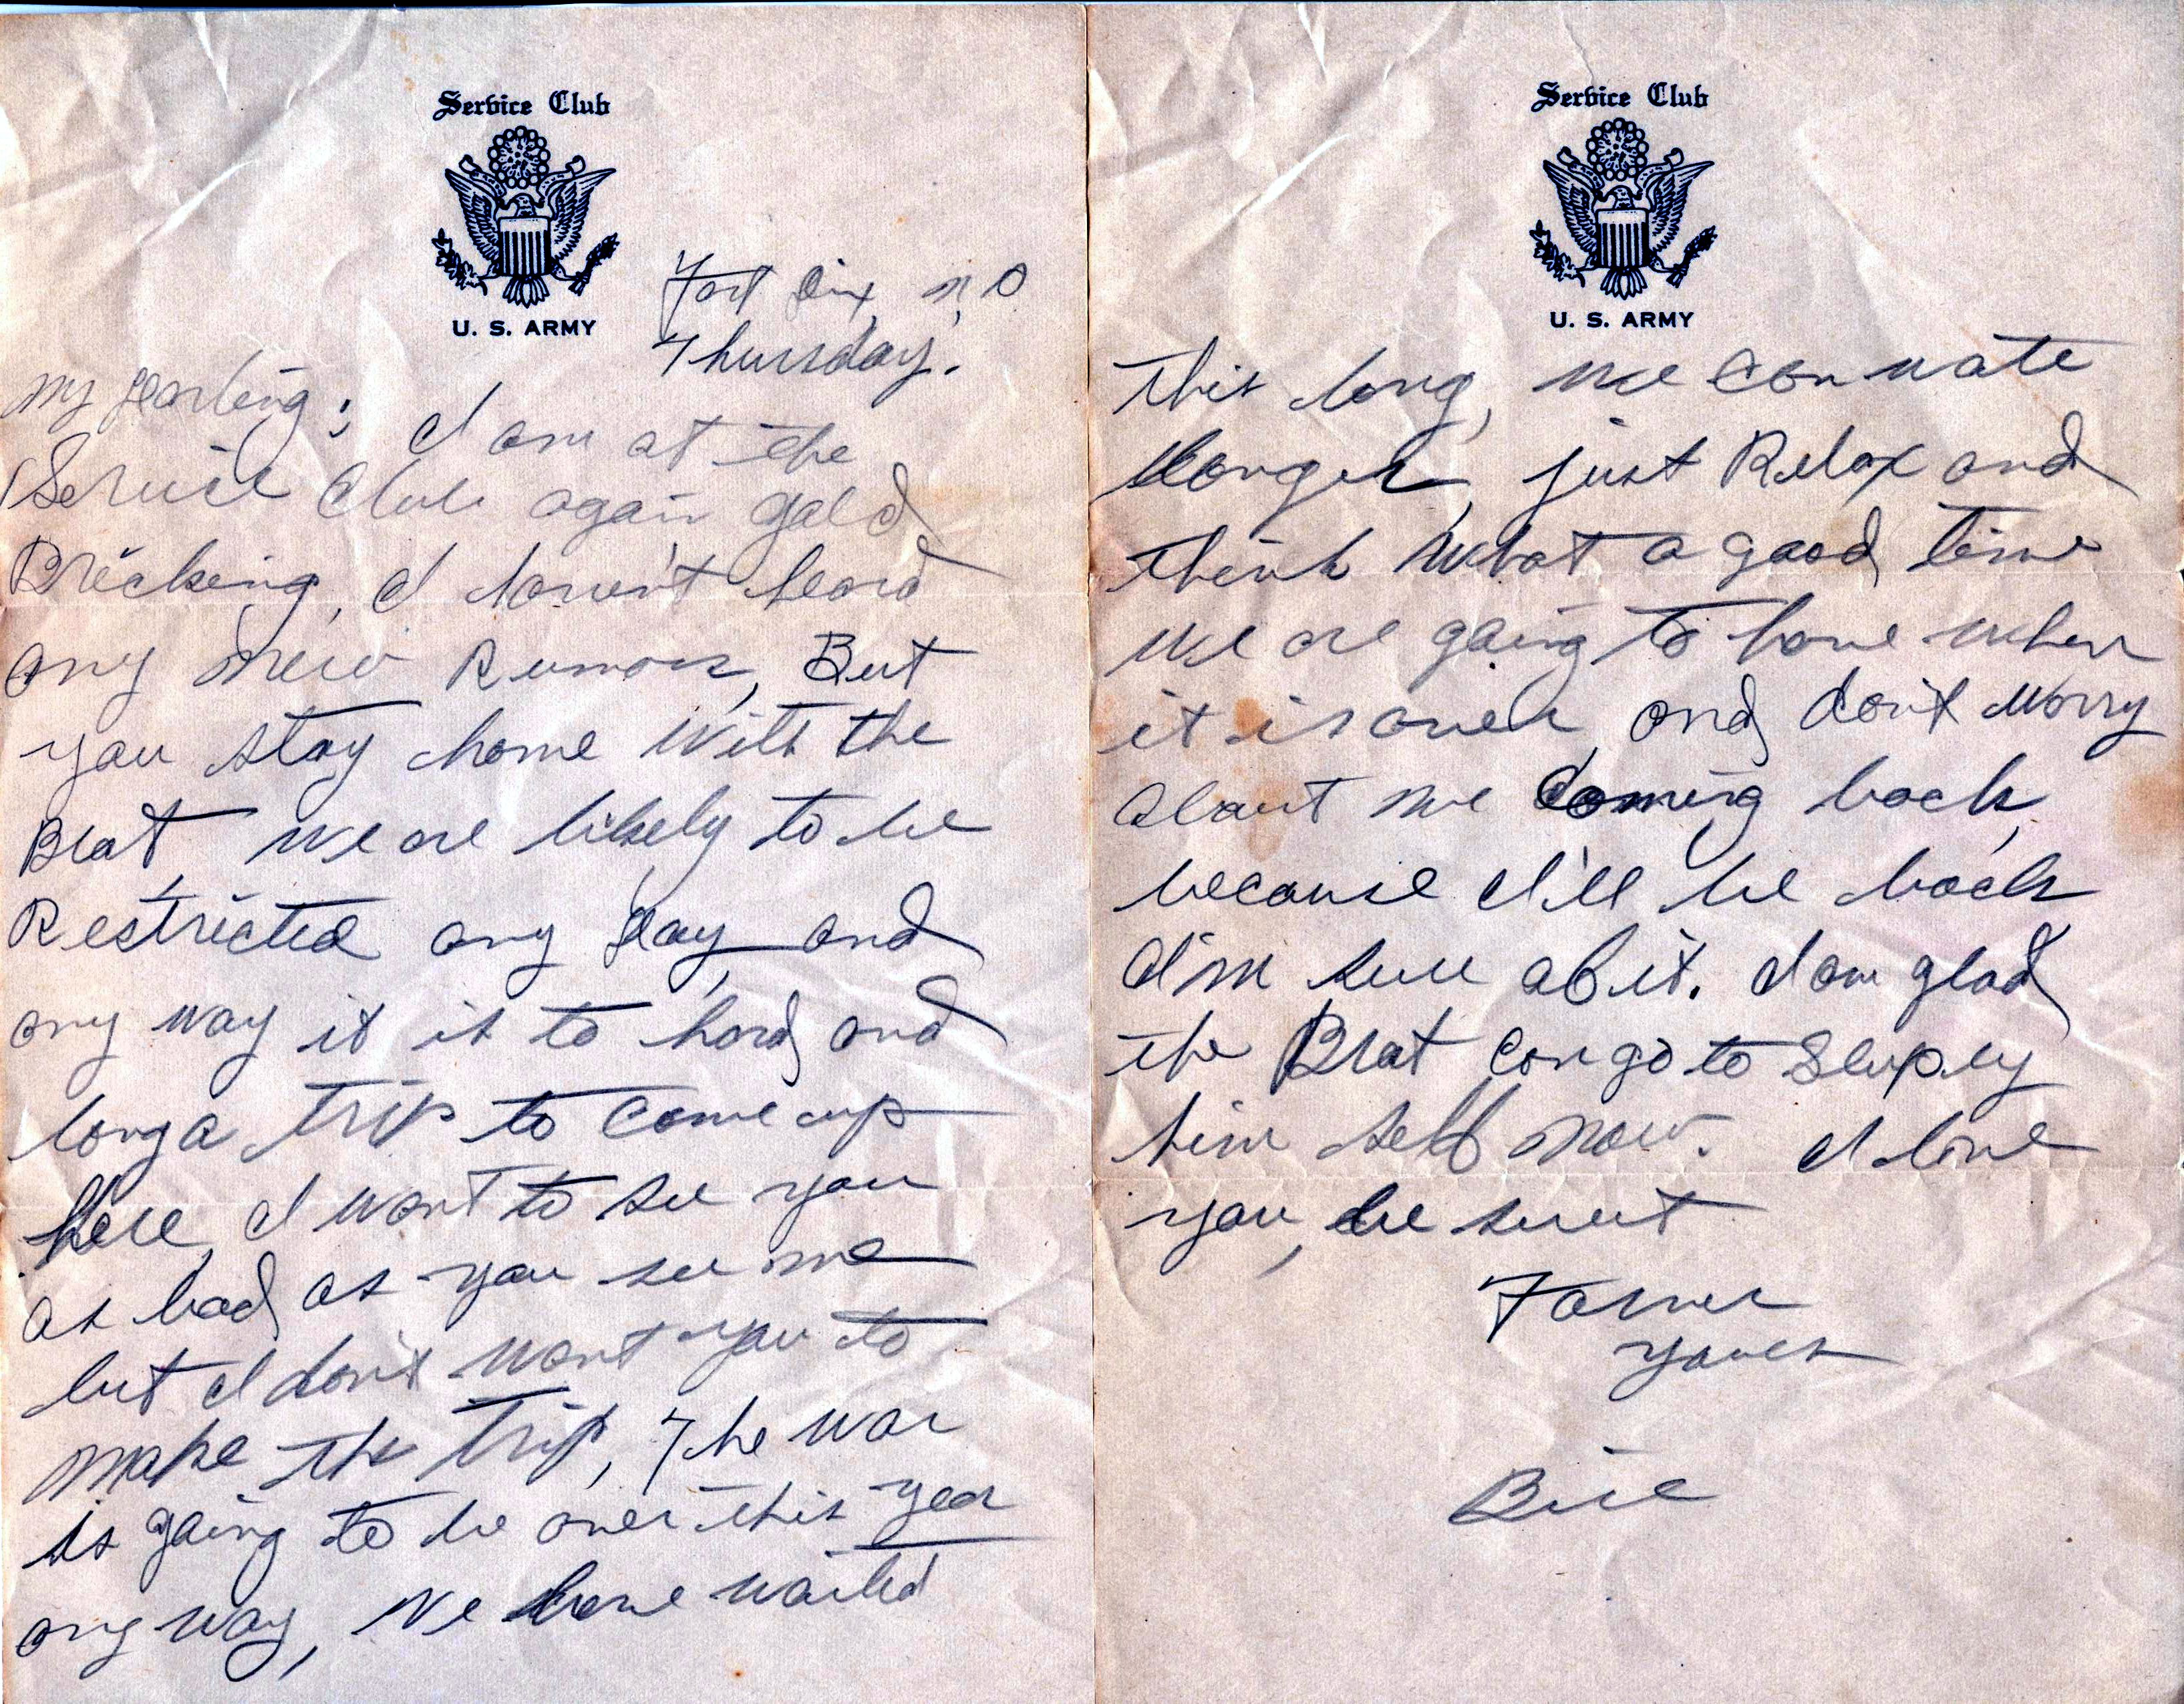 Service Club
U. S. ARMY
Fort Dix, n.
Thursday.
My Darling; I am at the
Service Club again gold
Bricking, I haven't heard
any new Rumors, But
you stay home with the
Brat we are likely to be
Restricted any day, and
any way it is to hard and
long a trip to come up
here, I want to see you
as bad as you see me
but I don't want you to
make the trip, The war
is going to be over this year
any way, We have waited
Service Club
U. S. ARMY
this long, we can wate
longer, just Relax and
think what a good time
we are going to have when
it is over, and don't worry
about me coming back,
because I'll be back
I'm sure of it. I am glad
the Brat can go to sleep by
him self now. I love
you, be sweet
yours
Bill